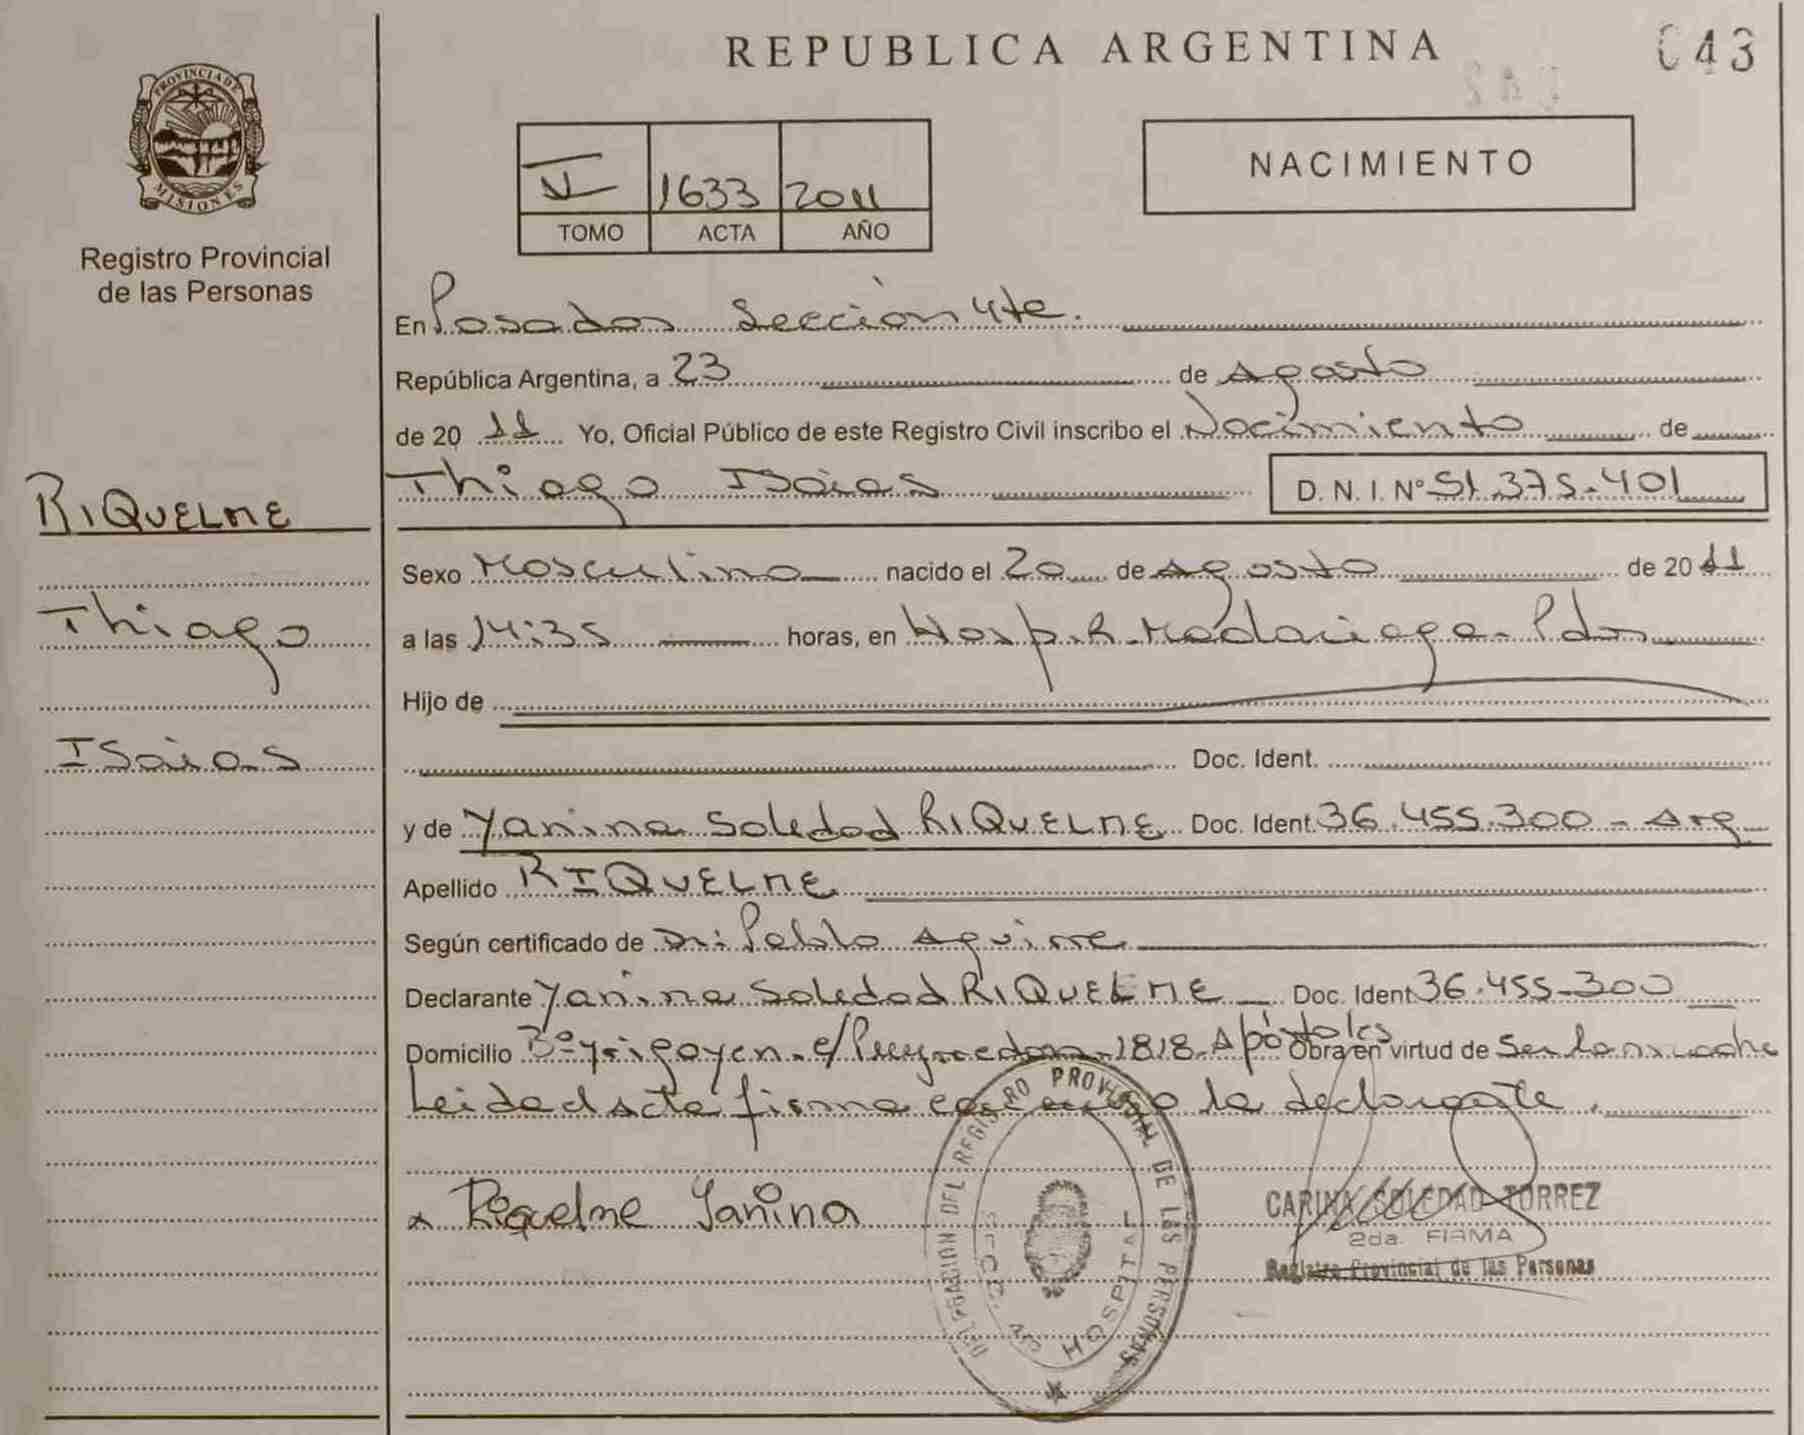 REPUBLICA ARGENTINA
043
PROVINCIA DE MISIONES
Registro Provincial
de las Personas
V 1633 2011
TOMO ACTA AÑO
NACIMIENTO
En Posadas Sección 4ta.
República Argentina, a 23 de Agosto
de 2011 Yo, Oficial Público de este Registro Civil inscribo el Nacimiento de
Thiago Isaias D. N. I. Nº 51.375.401
RIQUELME
Thiago
Isaias
Sexo Masculino nacido el 20 de Agosto de 2011
a las 14:35 horas, en Hosp. R. Madariaga - Pdas
Hijo de
Doc. Ident.
y de Yanina Soledad RIQUELME Doc. Ident. 36.455.300 - Arg
Apellido RIQUELME
Según certificado de Dr: Pablo Aguirre
Declarante Yanina Soledad RIQUELME Doc. Ident 36.455.300
Domicilio Bº Yrigoyen. c/ Pueyrredon 1818. Apóstoles Obra en virtud de Ser la madre
Leida el Acta firma conmigo la declarante.
x Riquelme Yanina
DELEGACION DEL REGISTRO PROVINCIAL DE LAS PERSONAS
SECC. 4ta HOSPITAL
CARINA SOLEDAD TORREZ
2da. FIRMA
Registro Provincial de las Personas